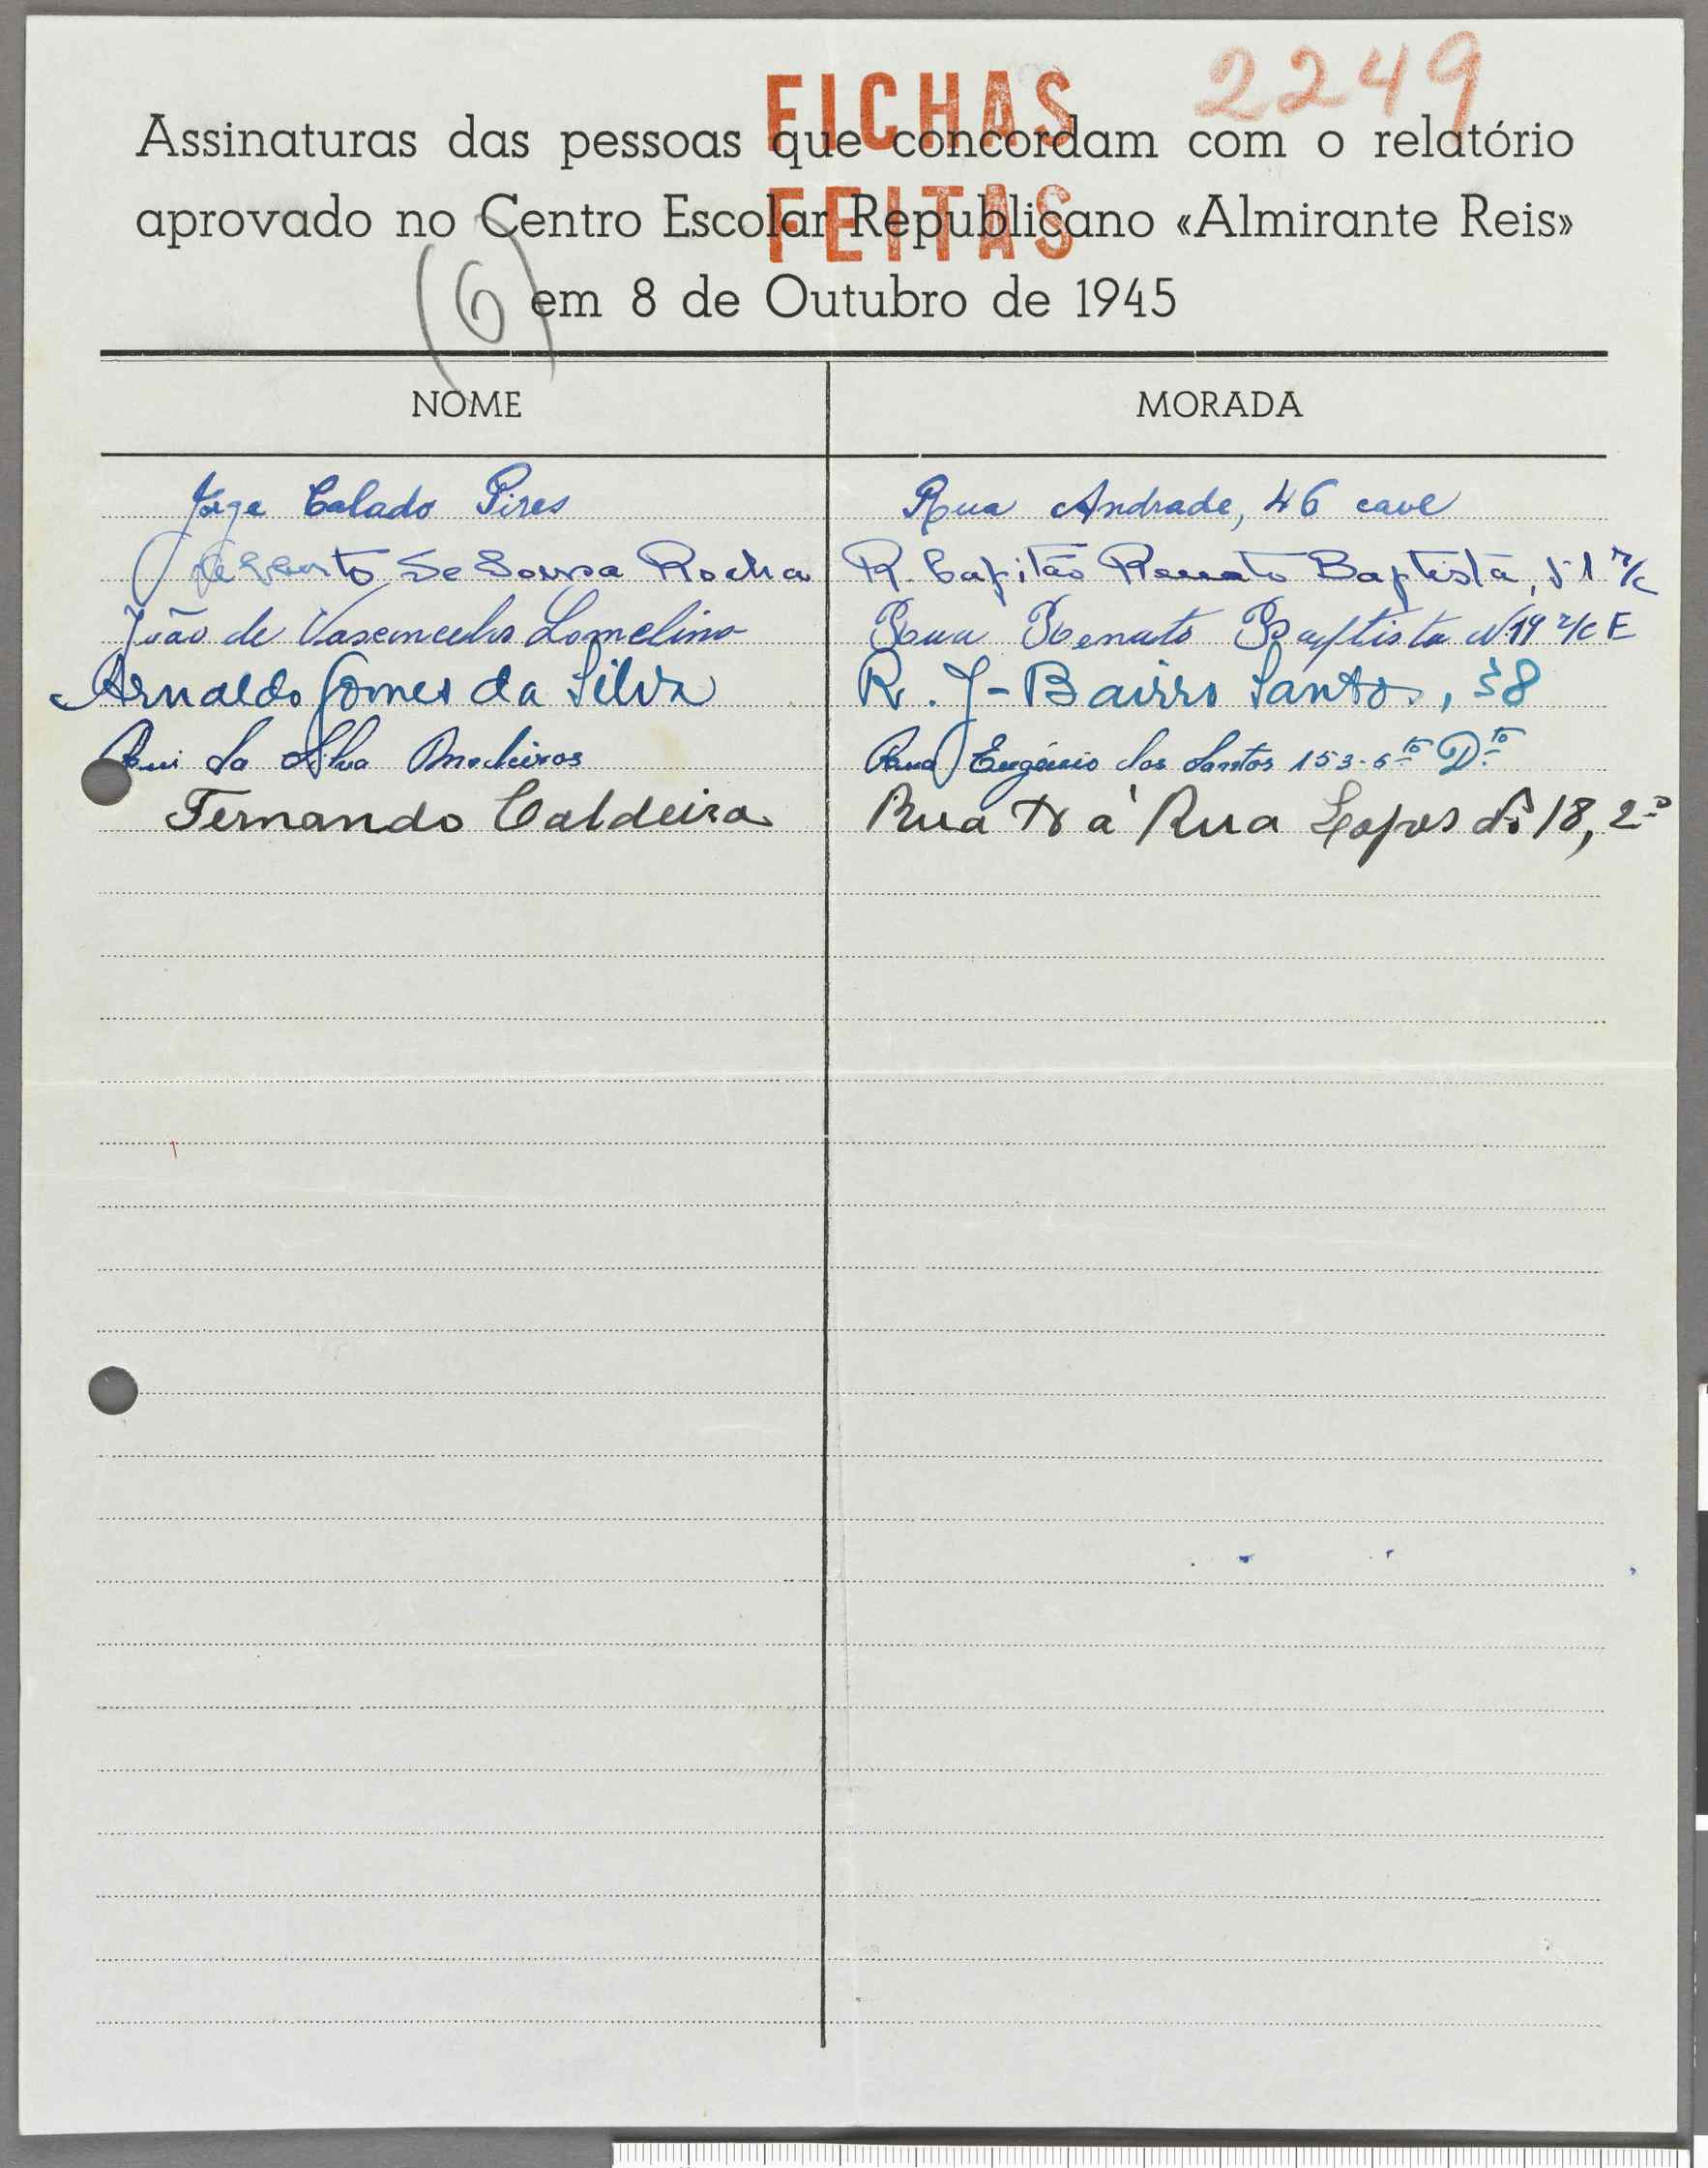 2249
FICHAS
FEITAS
Assinaturas das pessoas que concordam com o relatório
aprovado no Centro Escolar Republicano «Almirante Reis»
(6) em 8 de Outubro de 1945
NOME MORADA
Jorge Calado Pires Rua Andrade, 46 cave
de Sousa Rocha R. Capitão Renato Baptista, 51 r/c
João de Vasconcelos Lomelino Rua Renato Baptista Nº 19 r/c E
Arnaldo Gomes da Silva R. J - Bairro Santos, 38
Rui da Silva Medeiros Rua Eugénio dos Santos 153-5to Dto
Fernando Caldeira Rua à Rua Lopes nº 18, 2º